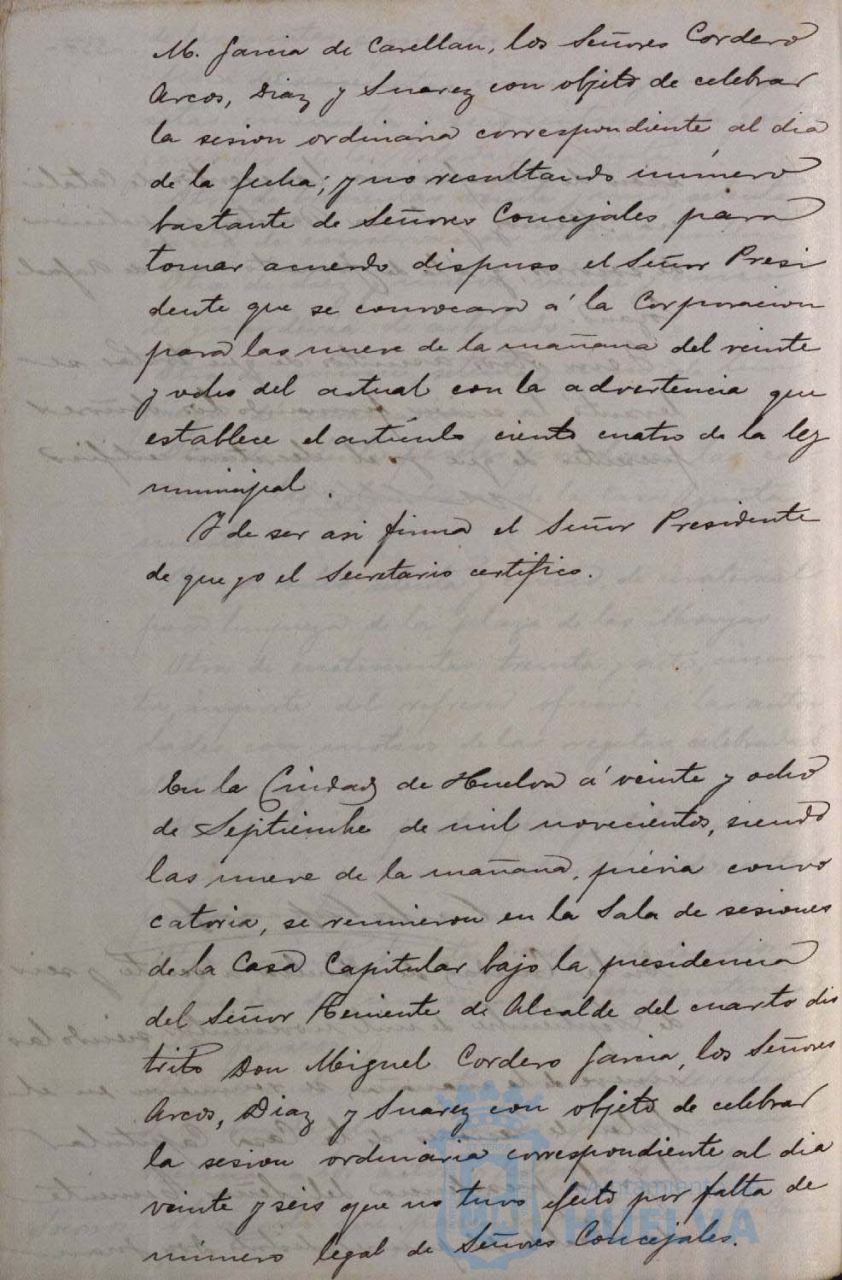 M. Garcia de Carellan, los Señores Cordero
Arcos, Diaz y Suarez con objeto de celebrar
la sesion ordinaria correspondiente al dia
de la fecha; y no resultando número
bastante de Señores Concejales para
tomar acuerdo dispuso el Señor Presi
dente que se convocara á la Corporacion
para las nueve de la mañana del veinte
y ocho del actual con la advertencia que
establece el artículo ciento cuatro de la ley
municipal.
Y de ser asi firma el Señor Presidente
de que yo el Secretario certifico.
En la Ciudad de Huelva á veinte y ocho
de Septiembre de mil novecientos, siendo
las nueve de la mañana, prévia convo
catoria, se reunieron en la Sala de sesiones
de la Casa Capitular bajo la presidencia
del Señor Teniente de Alcalde del cuarto dis
trito Don Miguel Cordero Garcia, los Señores
Arcos, Diaz y Suarez con objeto de celebrar
la sesion ordinaria correspondiente al dia
veinte y seis que no tuvo efecto por falta de
número legal de Señores Concejales.
Ayuntamiento
HUELVA